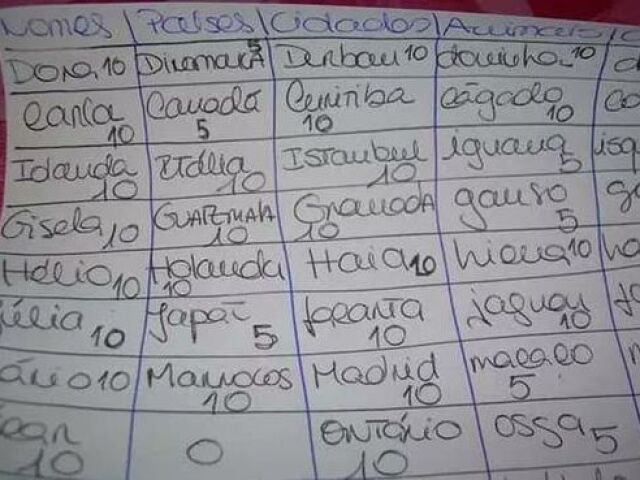 Nomes | Países | Cidades | Animais
Dora 10 Dinamarca 5 Durban 10 doninha 10 d
Carla 10 Canadá 5 Curitiba 10 cágado 10 co
Idauda 10 Itália 10 Istambul 10 iguana 5 isq
Gisela 10 Guatemala 10 Granada 10 ganso 5
Hélio 10 Holanda 10 Haia 10 hiena 10 ha
Júlia 10 Japão 5 10 jaguar 10
ário 10 Marrocos 10 Madrid 10 macaco 5 m
10 0 Ontário 10 ossa 5